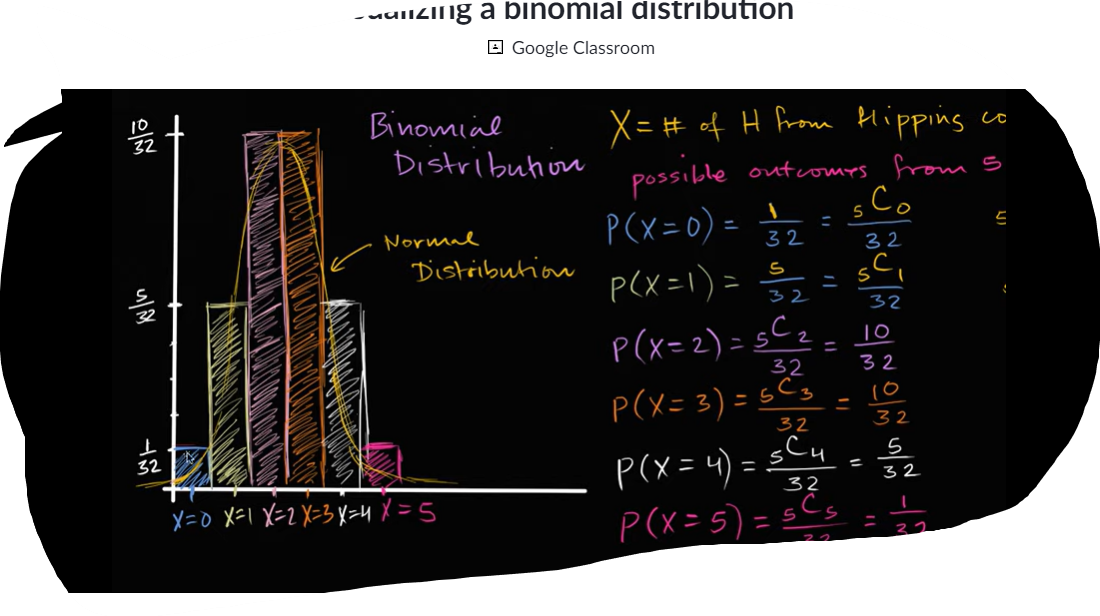 a binomial distribution
Google Classroom
10/32
5/32
1/32
X=0 X=1 X=2 X=3 X=4 X=5
Binomial
Distribution
Normal
Distribution
X = # of H from flipping
possible outcomes from 5
P(X=0) = 1/32 = ₅C₀/32
5
P(X=1) = 5/32 = ₅C₁/32
P(X=2) = ₅C₂/32 = 10/32
P(X=3) = ₅C₃/32 = 10/32
P(X=4) = ₅C₄/32 = 5/32
P(X=5) = ₅C₅/32 = 1/32